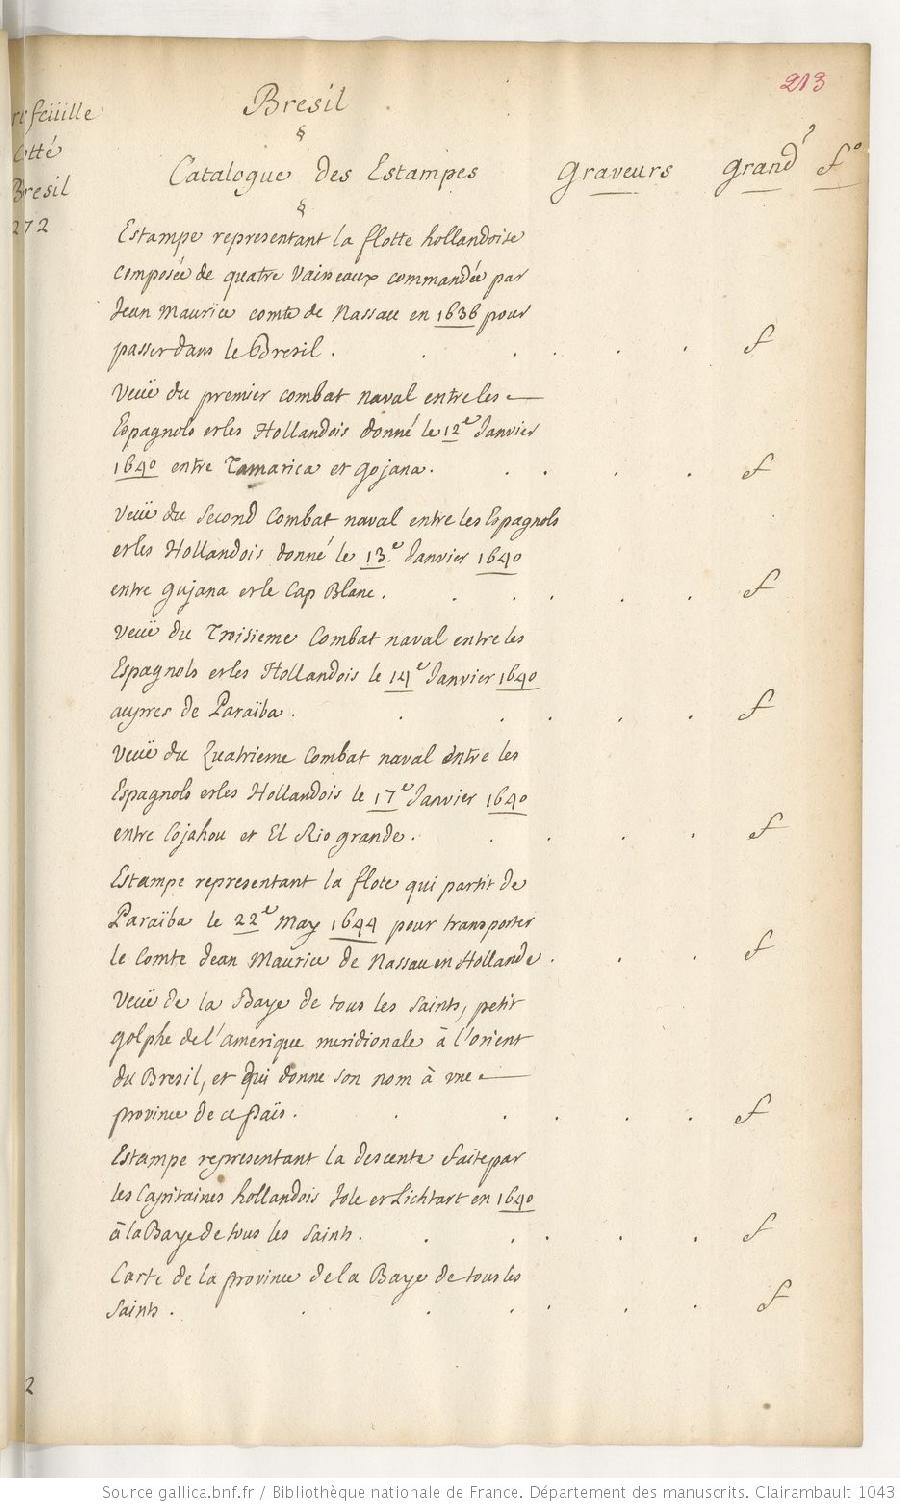 213
Bresil
refeüille
Cotté
Bresil
272
§
Catalogue des Estampes Graveurs grand.r f.o
§
Estampe representant la flotte hollandoise
composée de quatre Vaisseaux commandée par
Jean Maurice comte de Nassau en 1636 pour
passer dans le Bresil . f
Veüe du premier combat naval entre les
Espagnols et les Hollandois donné le 12e Janvier
1640 entre Tamarica et Gojana . f
Veüe du Second Combat naval entre les Espagnols
et les Hollandois donné le 13e Janvier 1640
entre Gujana et le Cap Blanc . f
Veüe du Troisieme Combat naval entre les
Espagnols et les Hollandois le 14e Janvier 1640
aupres de Paraïba . f
Veüe du Quatrieme Combat naval entre les
Espagnols et les Hollandois le 17e Janvier 1640
entre Cojahou et El Rio grande . f
Estampe representant la flote qui partit de
Paraïba le 22e May 1644 pour transporter
le Comte Jean Maurice de Nassau en Hollande . f
Veüe de la Baye de tous les Saints, petit
golphe de l'amerique meridionale à l'orient
du Bresil, et qui donne son nom à vne
province de ce païs . f
Estampe representant la descente faite par
les Capitaines hollandois Jole et Lichtart en 1640
à la Baye de tous les Saints . f
Carte de la province de la Baye de tous les
Saints . f
2
Source gallica.bnf.fr / Bibliothèque nationale de France. Département des manuscrits. Clairambault 1043